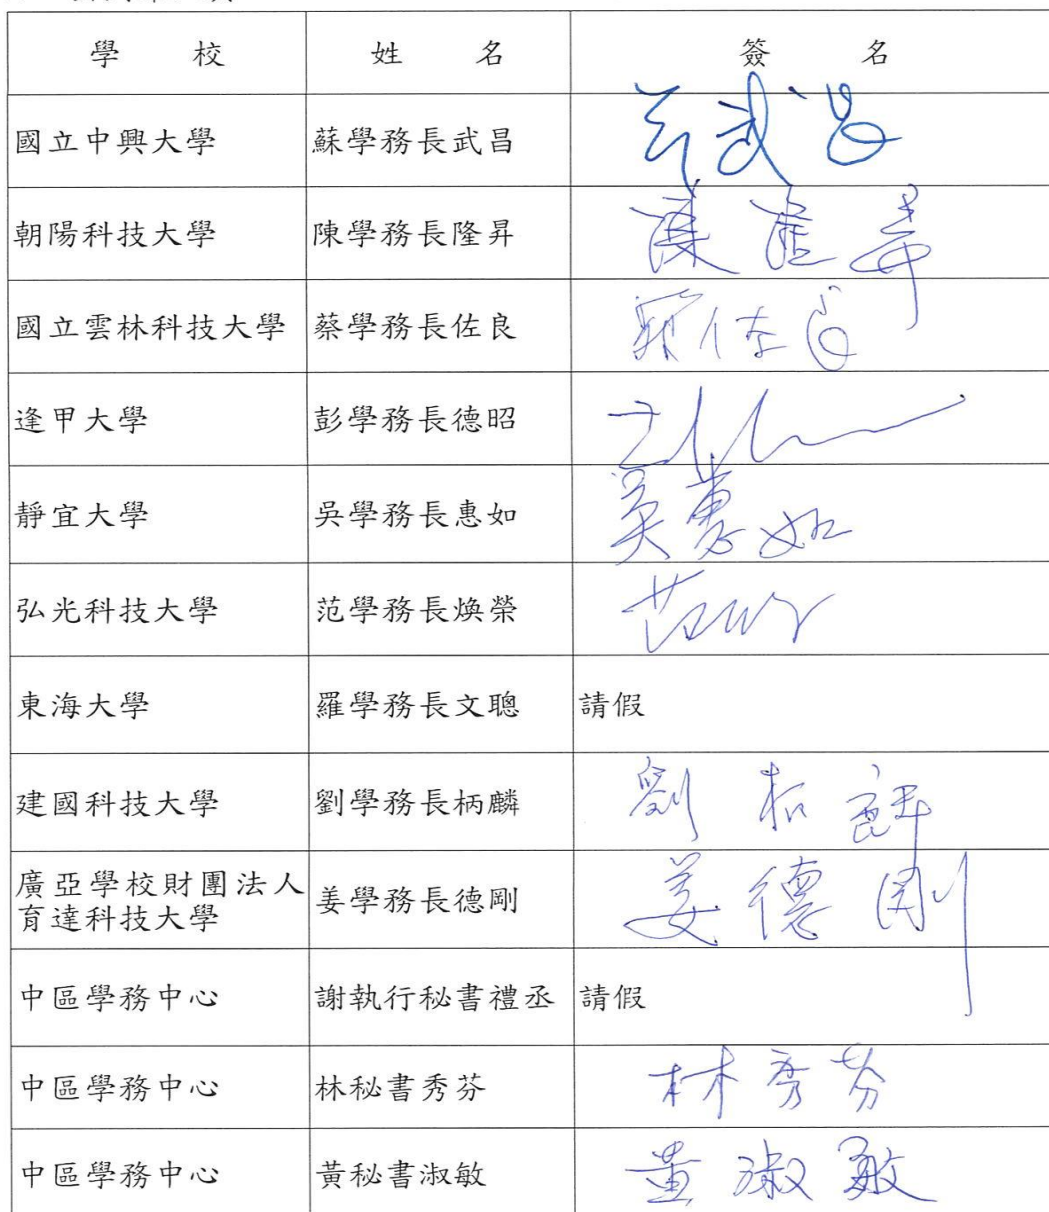 學 校 姓 名 簽 名
國立中興大學 蘇學務長武昌
朝陽科技大學 陳學務長隆昇
國立雲林科技大學 蔡學務長佐良 蔡佐良
逢甲大學 彭學務長德昭
靜宜大學 吳學務長惠如 吳惠如
弘光科技大學 范學務長煥榮
東海大學 羅學務長文聰 請假
建國科技大學 劉學務長柄麟
廣亞學校財團法人
育達科技大學 姜學務長德剛 姜德剛
中區學務中心 謝執行秘書禮丞 請假
中區學務中心 林秘書秀芬 林秀芬
中區學務中心 黃秘書淑敏 黃淑敏